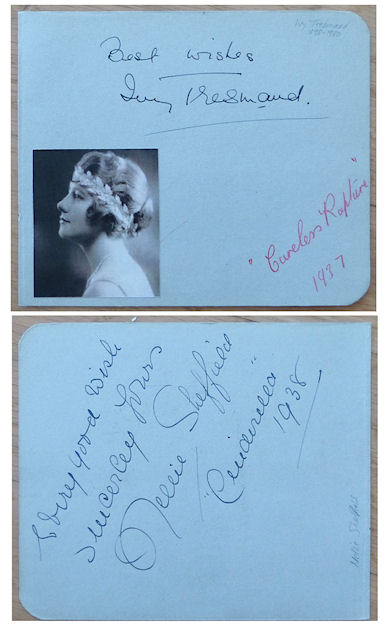 Ivy Tresmand
1898-1980
Best wishes
Ivy Tresmand.
"Careless Rapture"
1937
Every good wish
sincerley yours
Nellie Sheffield
"Cinderella"
1938
Nellie Sheffield